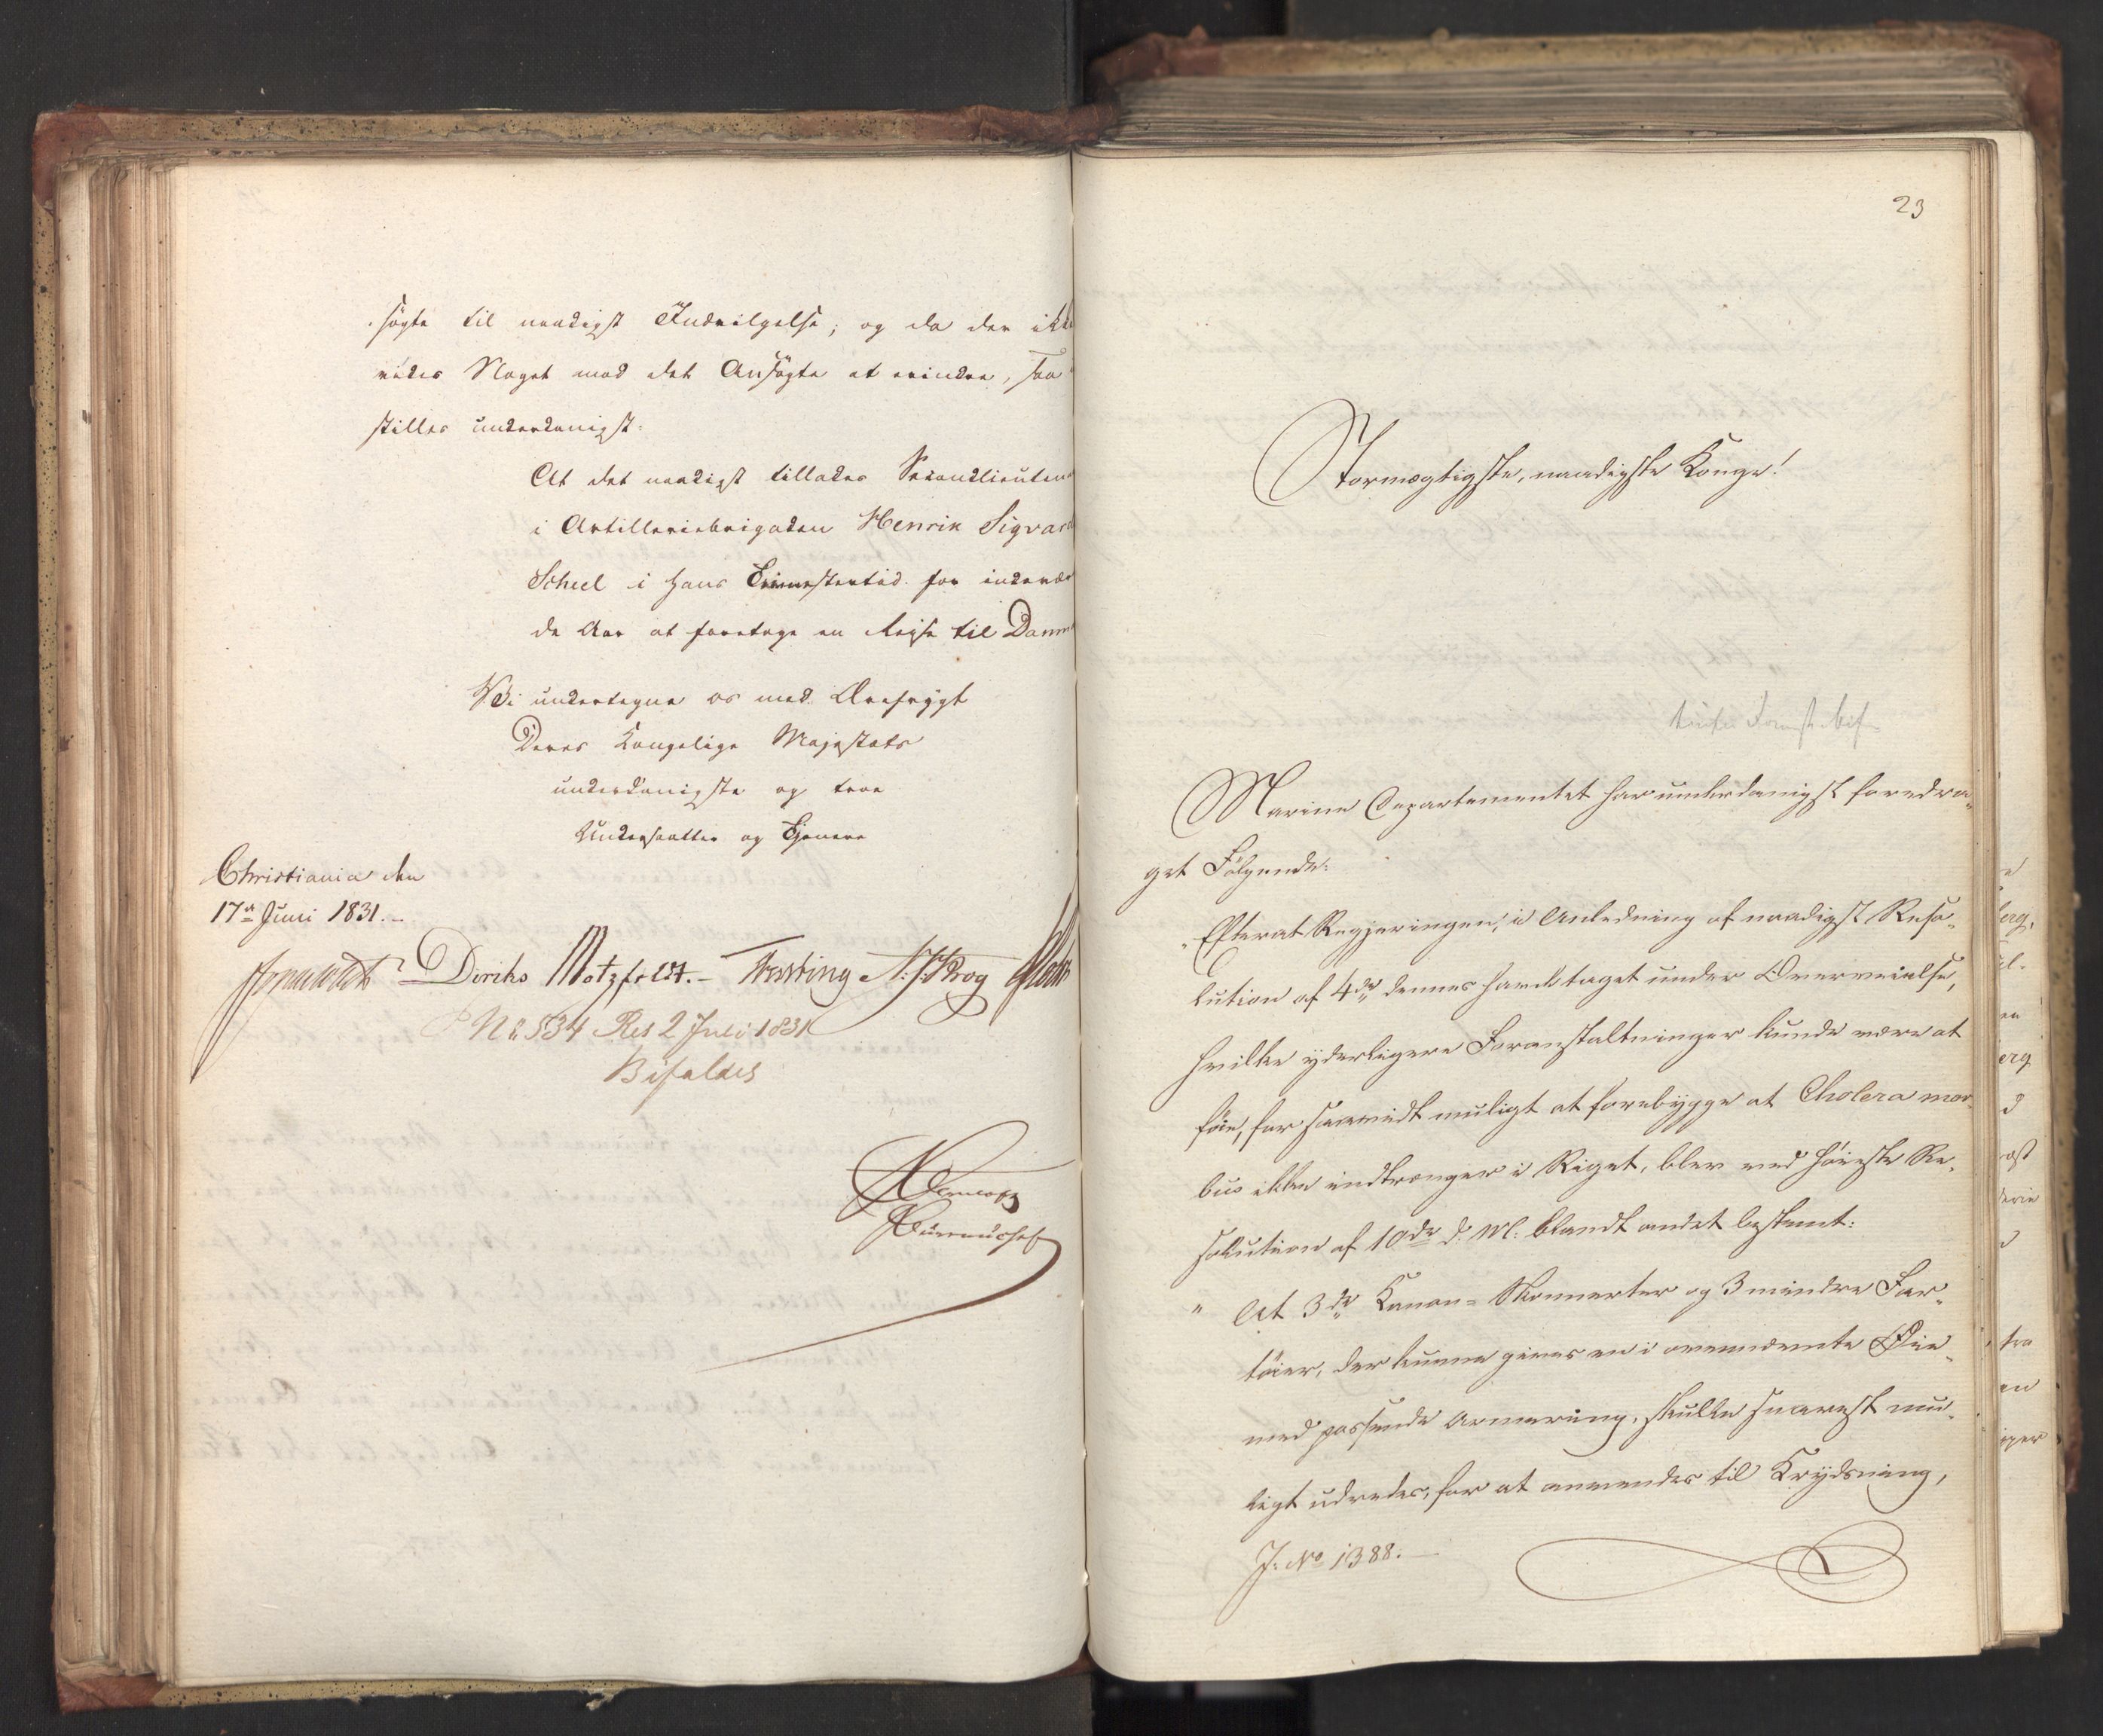 søgte til naadigst Indvilgelse; og da der ikke
vides Noget mod det Ansøgte at erindre, saa
stilles underdanigst:
At det naadigst tillades Secondlieuten
i Artilleriebrigaden Henrik Sigvard
Scheel i hans Trimestertid for indevæ
de Aar at foretage en Reise til Danm
Vi undertegne os med Ærefrygt
Deres Kongelige Majestæts
underdanigste og troe
Undersaatter og Tjenere
Christiania den
17de Juni 1831.-
Diriks Motzfeldt.- Fasting N: J: Krog
No 534 Res 2 Juli 1831
Bifaldes
23
Stormægtigste, naadigste Konge!
Marine Departementet har underdanigst foredra-
get Følgende:
"Efterat Regjeringen, i Anledning af naadigst Reso-
lution af 4de dennes havde taget under Overveielse,
hvilke yderligere Foranstaltninger kunde være at
føie, for saavidt muligt at forebygge at Cholera mor-
bus ikke indtrænger i Riget, blev ved høieste Re-
solution af 10de d: M: blandt andet bestemt:
" At 3de Kanon-Skonnerter og 3 mindre Far-
tøier, der kunne gives en i ovennævnte Øie-
med passende Armering, skulle snarest mu-
ligt udredes, for at anvendes til Krydsning,
J: No 1388.-